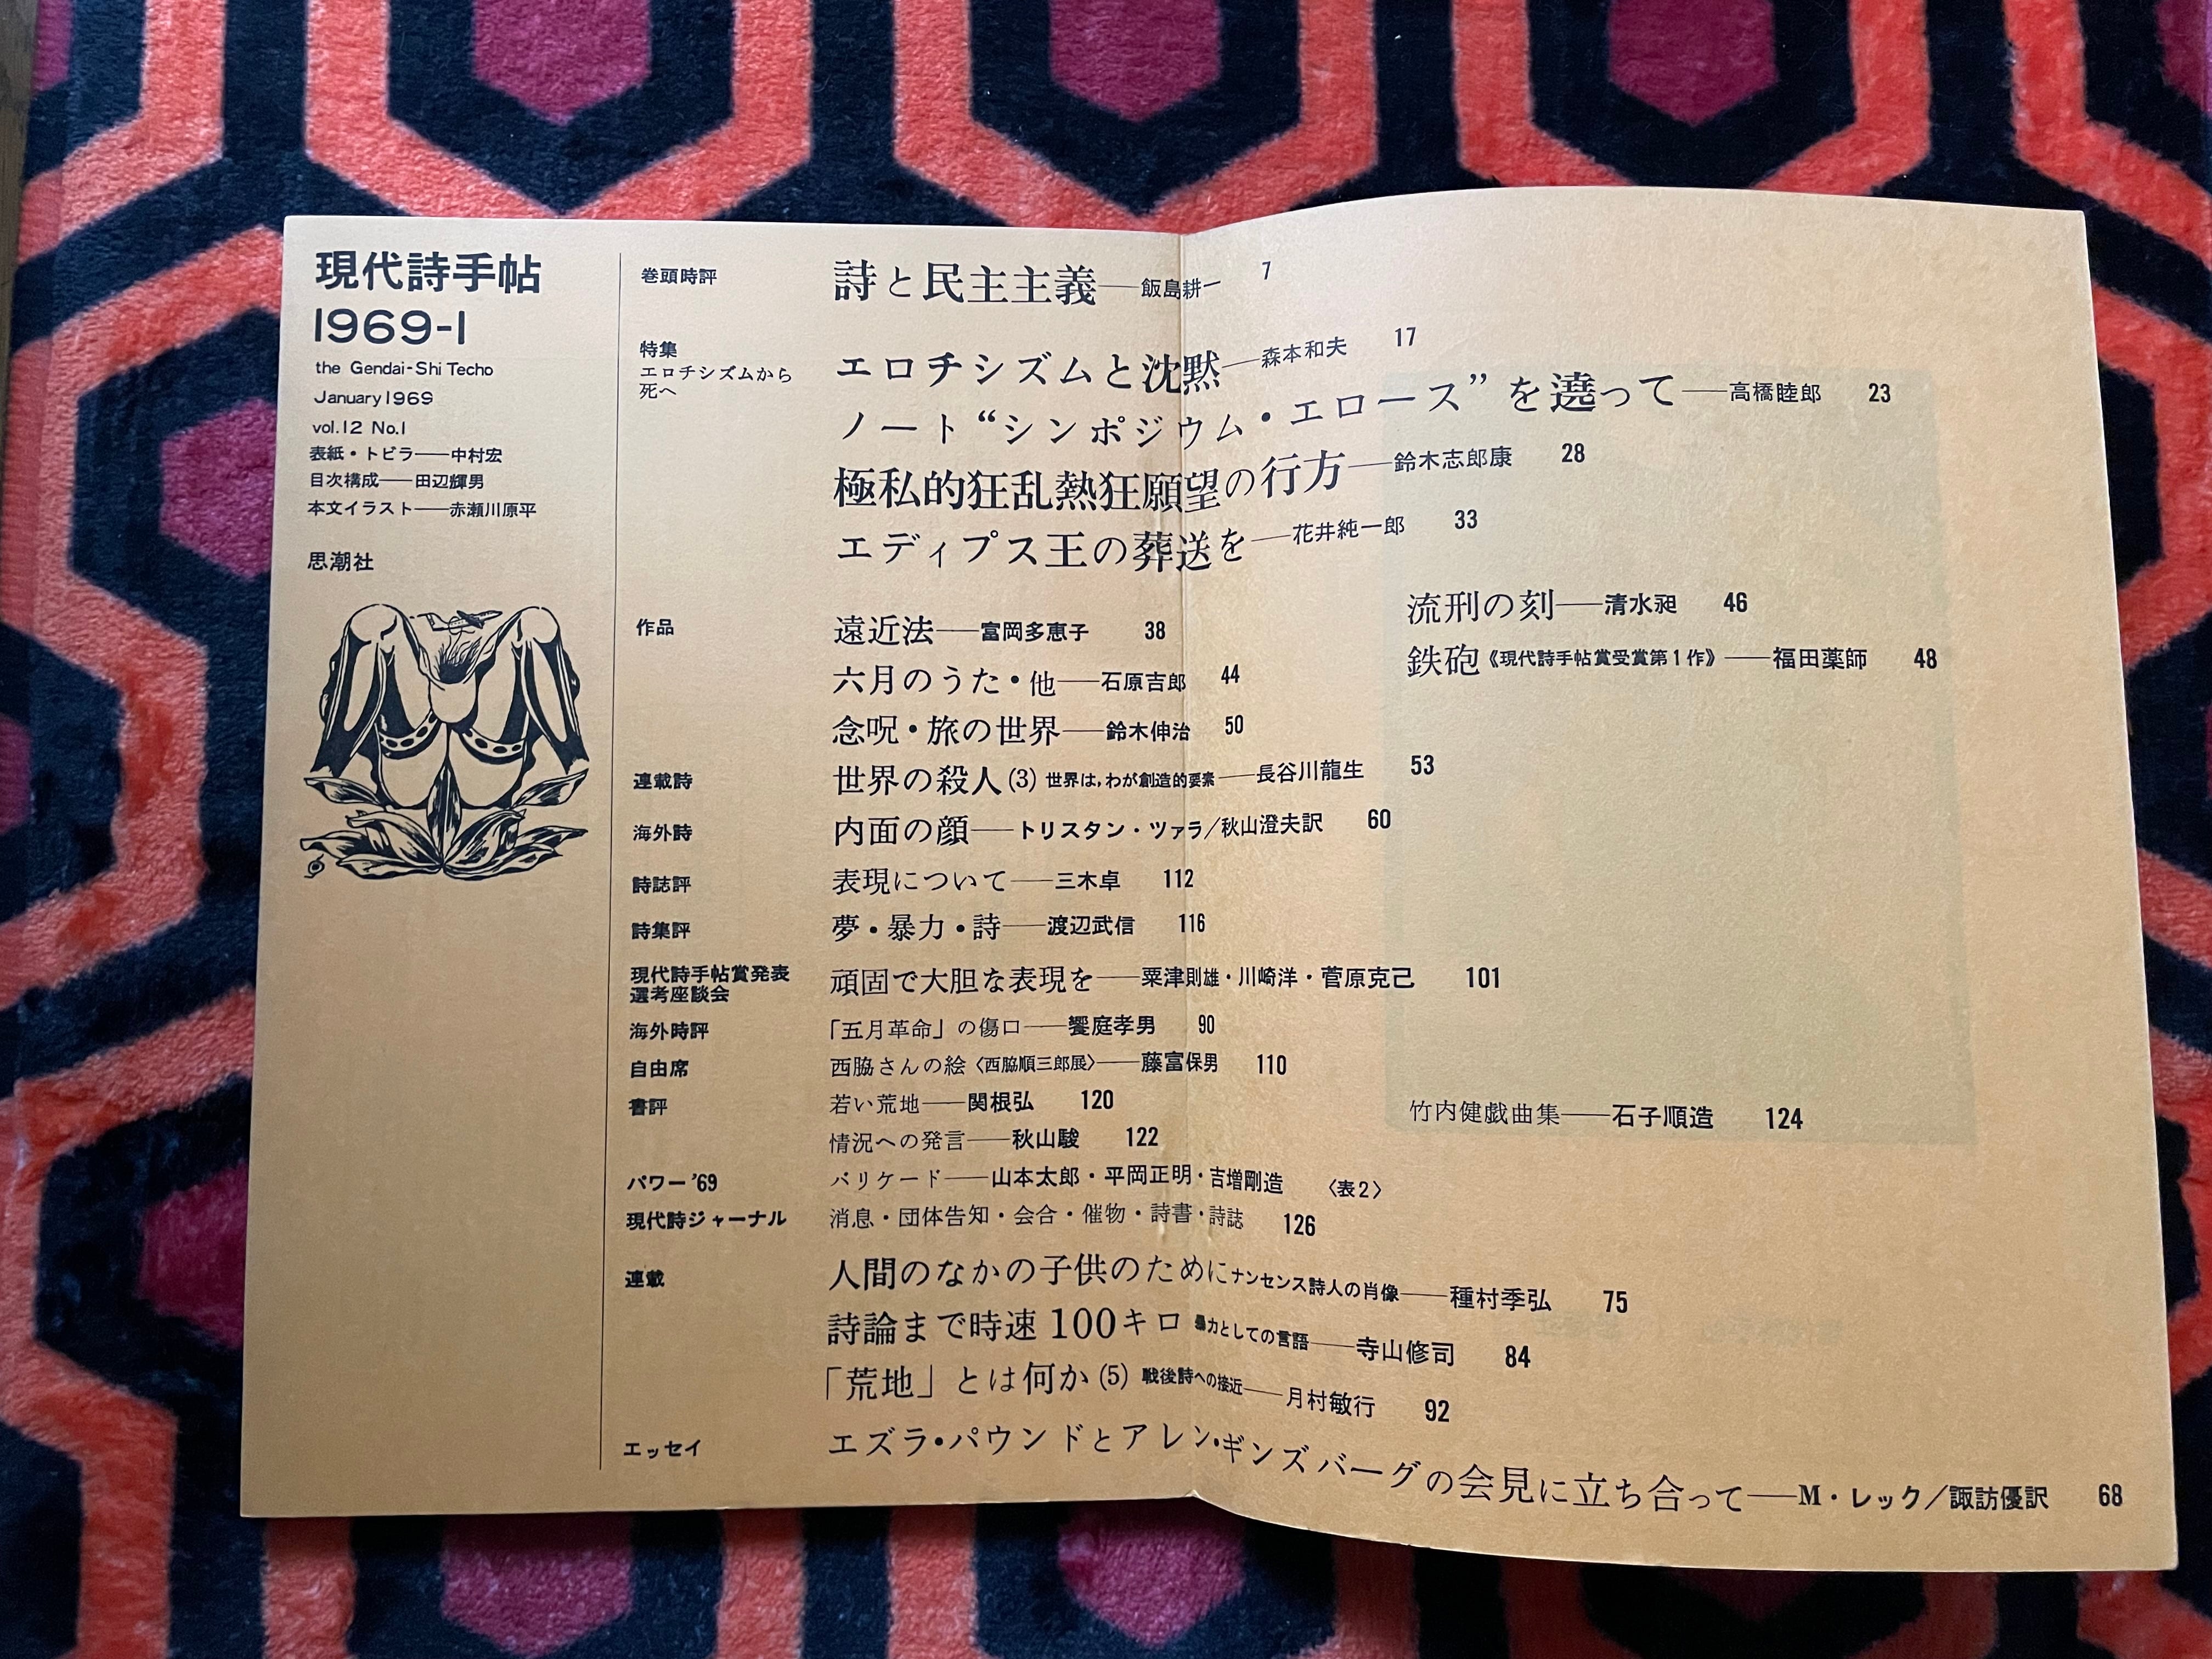 現代詩手帖
1969-1
the Gendai-Shi Techo
January 1969
vol.12 No.1
表紙・トビラ──中村宏
目次構成──田辺輝男
本文イラスト──赤瀬川原平
思潮社
巻頭時評
詩と民主主義──飯島耕一 7
特集
エロチシズムから
死へ
エロチシズムと沈黙──森本和夫 17
ノート“シンポジウム・エロース”を遶って──高橋睦郎 23
極私的狂乱熱狂願望の行方──鈴木志郎康 28
エディプス王の葬送を──花井純一郎 33
作品
遠近法──富岡多恵子 38
六月のうた・他──石原吉郎 44
念呪・旅の世界──鈴木伸治 50
流刑の刻──清水昶 46
鉄砲《現代詩手帖賞受賞第1作》──福田薬師 48
連載詩
世界の殺人(3) 世界は,わが創造的要素──長谷川龍生 53
海外詩
内面の顔──トリスタン・ツァラ/秋山澄夫訳 60
詩誌評
表現について──三木卓 112
詩集評
夢・暴力・詩──渡辺武信 116
現代詩手帖賞発表
選考座談会
頑固で大胆な表現を──粟津則雄・川崎洋・菅原克己 101
海外時評
「五月革命」の傷口──饗庭孝男 90
自由席
西脇さんの絵〈西脇順三郎展〉──藤富保男 110
書評
若い荒地──関根弘 120
情況への発言──秋山駿 122
竹内健戯曲集──石子順造 124
パワー’69
バリケード──山本太郎・平岡正明・吉増剛造 〈表2〉
現代詩ジャーナル
消息・団体告知・会合・催物・詩書・詩誌 126
連載
人間のなかの子供のために ナンセンス詩人の肖像──種村季弘 75
詩論まで時速100キロ 暴力としての言語──寺山修司 84
「荒地」とは何か(5) 戦後詩への接近──月村敏行 92
エッセイ
エズラ・パウンドとアレン・ギンズバーグの会見に立ち合って──M・レック/諏訪優訳 68